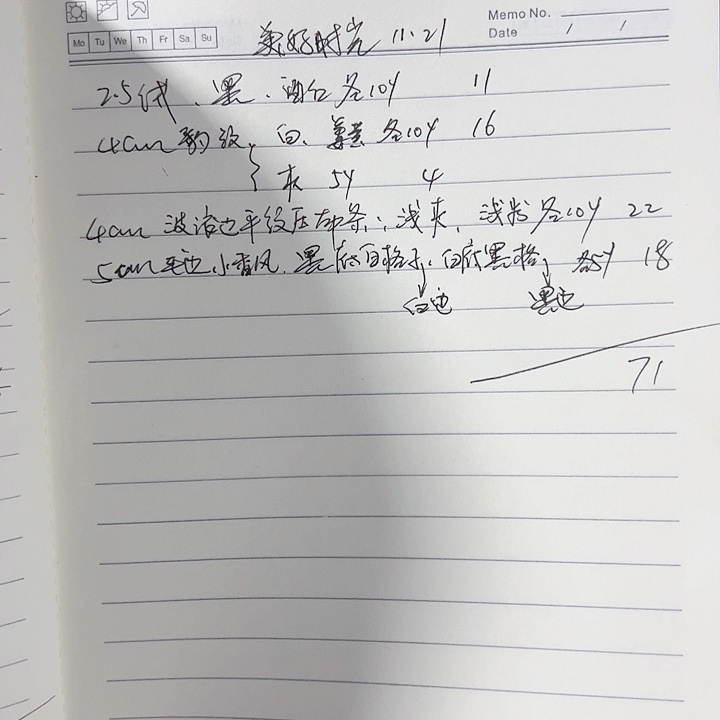 Memo No.
Mo Tu We Th Fr Sa Su
Date / /
美好时光 11.21
2.5绒、黑、酒红各10Y 11
4cm 豹纹, 白、姜黄各10Y 16
灰 5Y 4
4cm 波浪边平纹压皱条: 浅灰, 浅粉各10Y 22
5cm毛边小香风, 黑底白格子, 白底黑格, 各5Y 18
白边 黑边
71